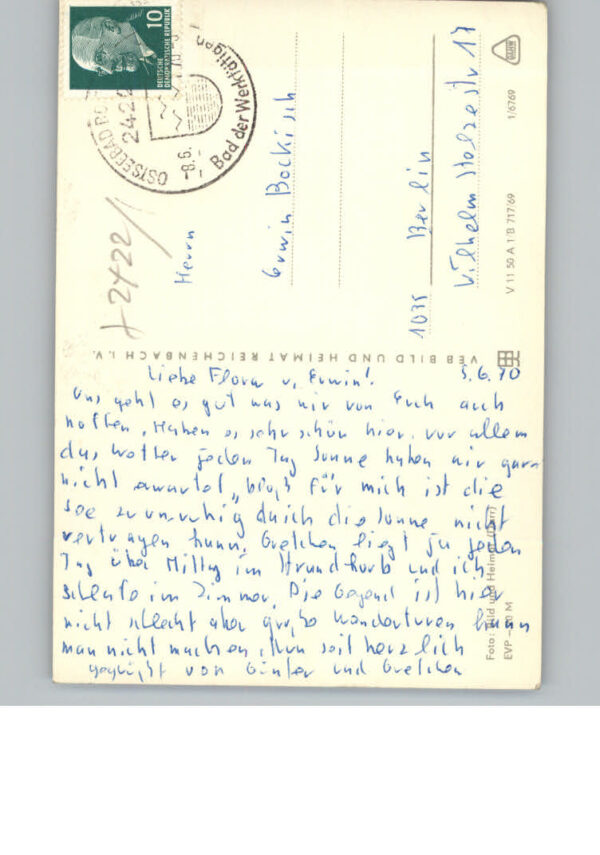 10
DEUTSCHE
DEMOKRATISCHE REPUBLIK
OSTSEEBAD
2422
-8.6.
Bad der Werktätigen
+2422/
Herrn
Erwin Bockisch
1035 Berlin
Wilhelm Stolzestr 17
V 11 50 A 1/B 717/69 1/6769
VEB BILD UND HEIMAT REICHENBACH I. V.
Foto: Bild und Heimat
EVP
Liebe Flora u. Erwin! 5.6.70
Uns geht es gut was wir von Euch auch
hoffen. Haben es sehr schön hier. vor allem
das Wetter jeden Tag Sonne haben wir garn
nicht erwartet, bloß für mich ist die
See zu unruhig da ich die Sonne nicht
vertragen kann. Gretchen liegt ja jeden
Tag über Mittag im Strandkorb und ich
schlafe im Zimmer. Die Gegend ist hier
nicht schlecht aber große Wandertouren kann
man nicht machen. Nun seit herzlich
gegrüßt von Günter und Gretchen